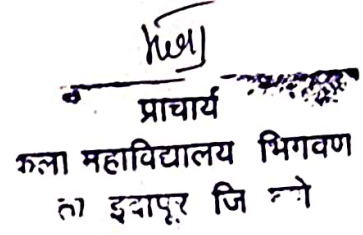 प्राचार्य
कला महाविद्यालय भिगवण
ता इंदापूर जि